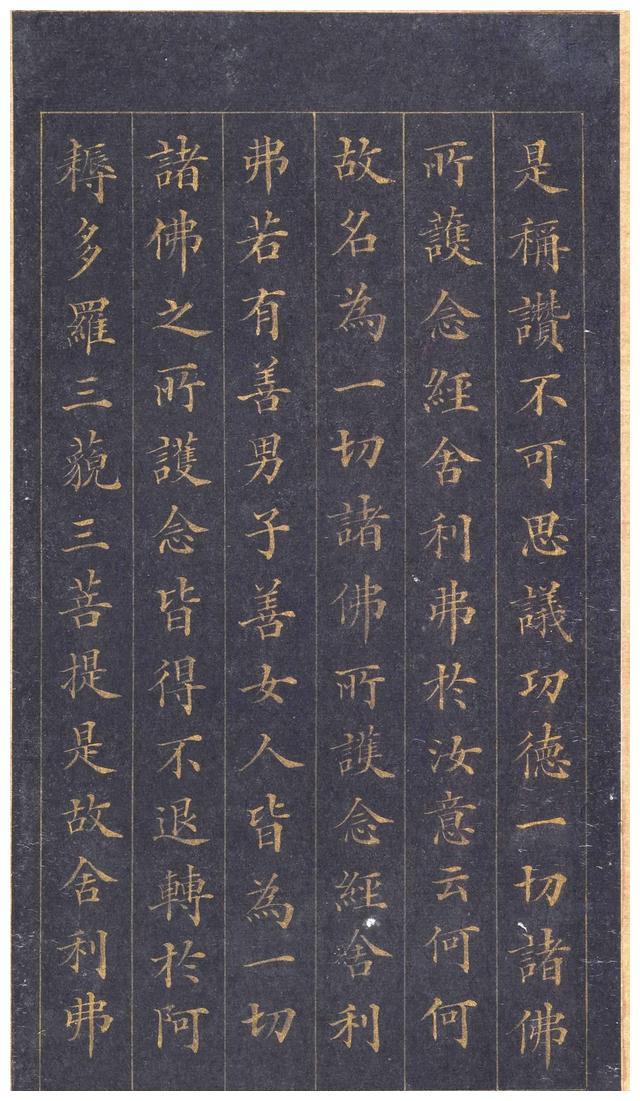 是稱讚不可思議功德一切諸佛
所護念經舍利弗於汝意云何何
故名為一切諸佛所護念經舍利
弗若有善男子善女人皆為一切
諸佛之所護念皆得不退轉於阿
耨多羅三藐三菩提是故舍利弗